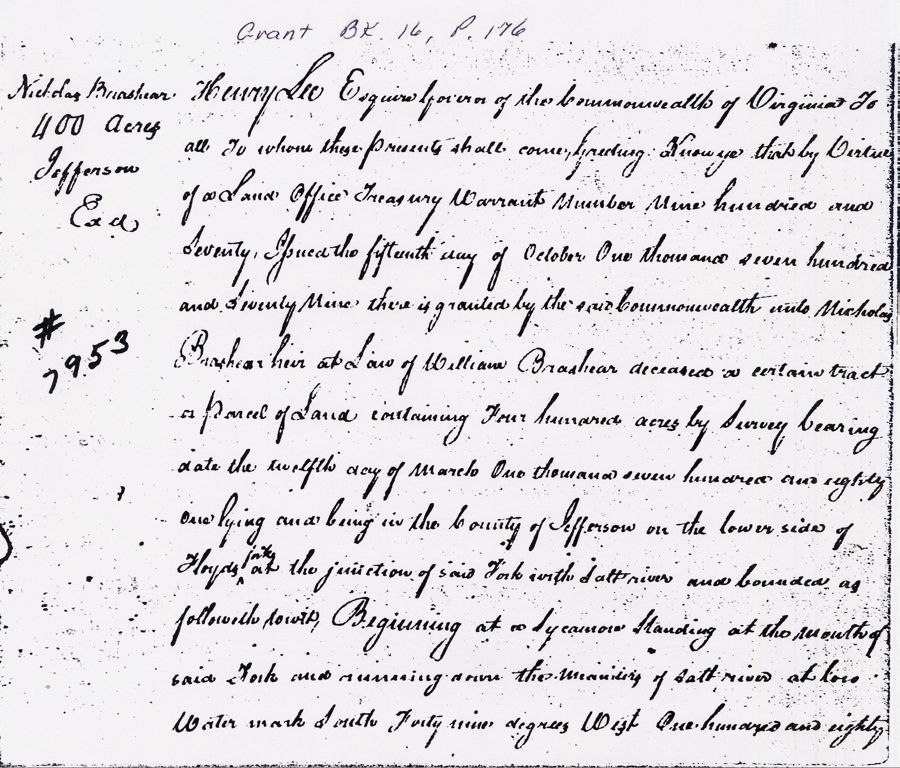 Grant BK. 16, P. 176
Nicholas Brashear
400 Acres
Jefferson
Exd
#
7953
Henry Lee Esquire Governor of the Commonwealth of Virginia To
all To whom these Presents shall come, greeting. Know ye that by Virtue
of a Land Office Treasury Warrant Number Nine hundred and
Seventy, Issued the fifteenth day of October One thousand seven hundred
and Seventy Nine there is granted by the said Commonwealth unto Nicholas
Brashear heir at Law of William Brashear deceased a certain tract
or Parcel of Land containing Four hundred acres by Survey bearing
date the twelfth day of March One thousand seven hundred and eighty
One lying and being in the County of Jefferson on the lower side of
Floyds fork at the junction of said Fork with Salt river and bounded as
followeth towit, Beginning at a Sycamore Standing at the mouth of
said Fork and running down the meanders of Salt river at low
Water mark South Forty nine degrees West One hundred and eighty